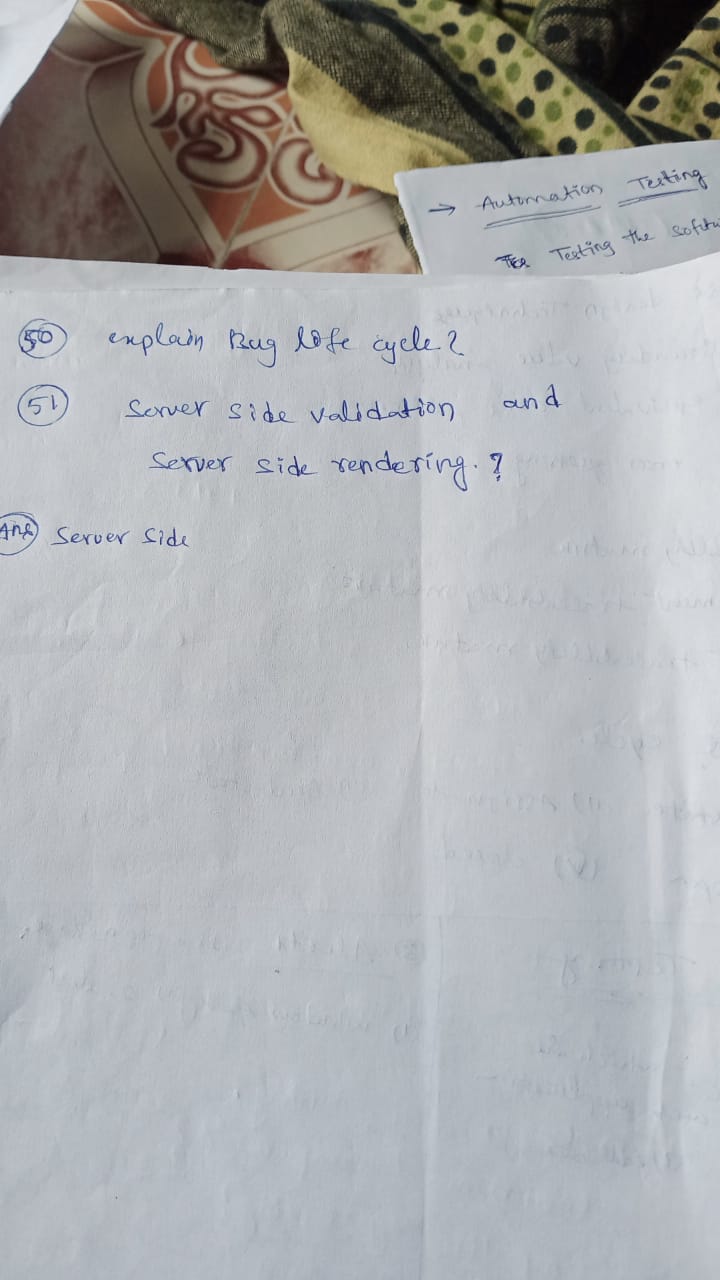 → Automation Testing
Testing the softw
50 explain Bug life cycle?
51 Server side validation and
Server side rendering.?
Ans Server side